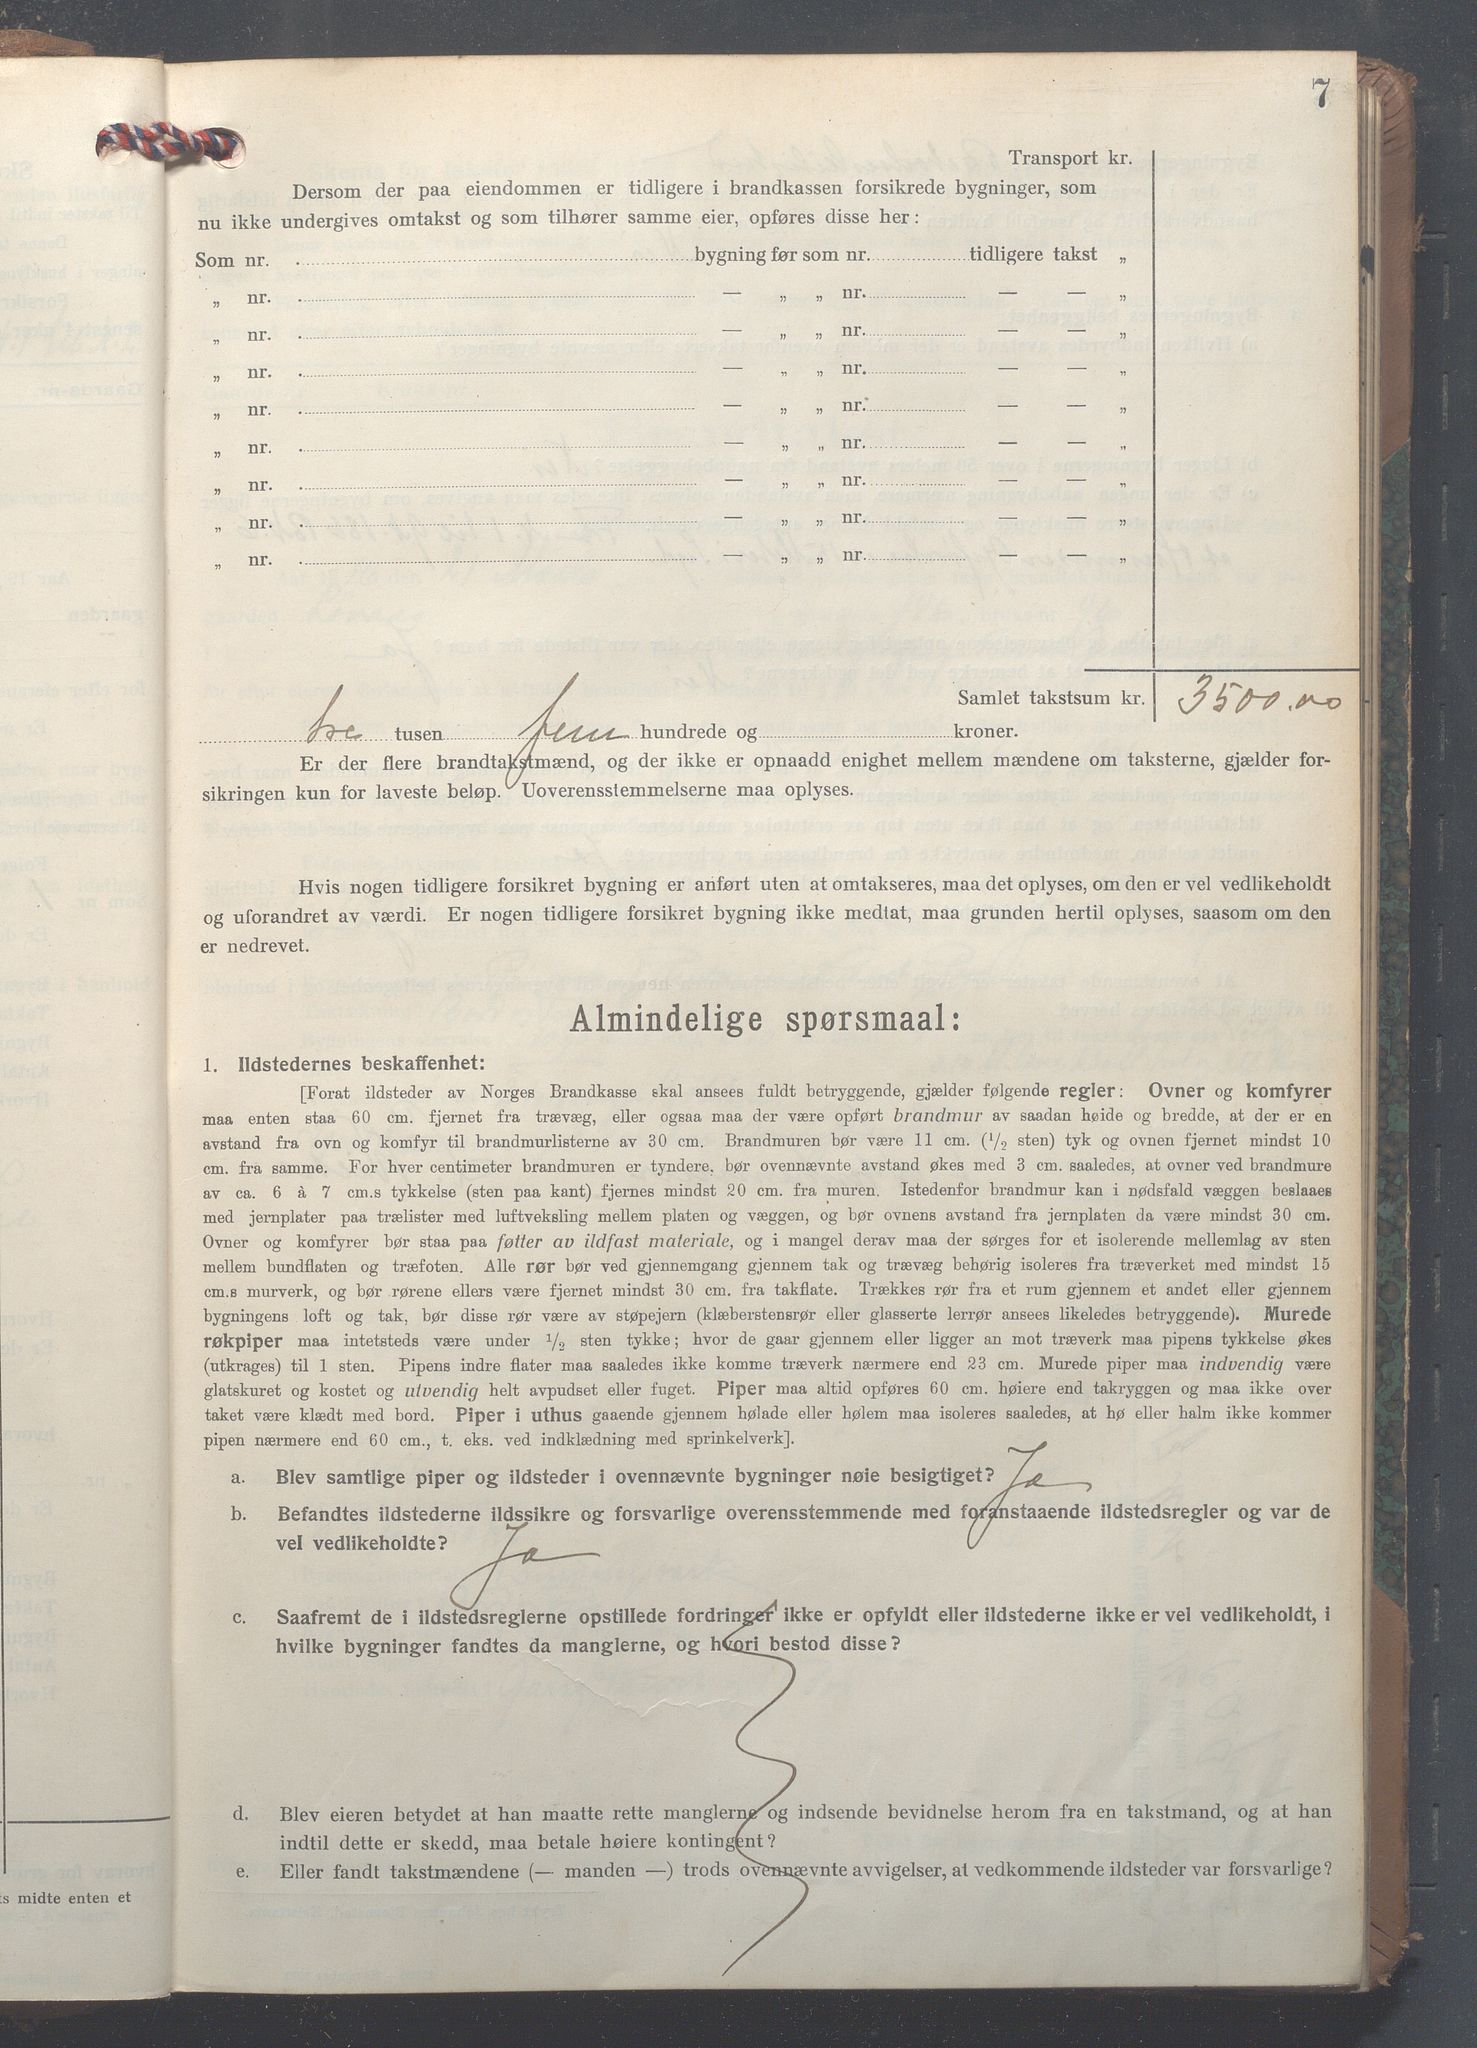 7
Transport kr.
Dersom der paa eiendommen er tidligere i brandkassen forsikrede bygninger, som
nu ikke undergives omtakst og som tilhører samme eier, opføres disse her:
Som nr. bygning før som nr. tidligere takst „
„ nr. — „ „ nr. — — „
„ nr. — „ „ nr. — — „
„ nr. — „ „ nr. — — „
„ nr. — „ „ nr. — — „
„ nr. — „ „ nr. — — „
„ nr. — „ „ nr. — — „
„ nr. — „ „ nr. — — „
„ nr. — „ „ nr. — — „
Samlet takstsum kr. 3500.00
tre tusen fem hundrede og kroner.
Er der flere brandtakstmænd, og der ikke er opnaadd enighet mellem mændene om taksterne, gjælder for-
sikringen kun for laveste beløp. Uoverensstemmelserne maa oplyses.
Hvis nogen tidligere forsikret bygning er anført uten at omtakseres, maa det oplyses, om den er vel vedlikeholdt
og uforandret av værdi. Er nogen tidligere forsikret bygning ikke medtat, maa grunden hertil oplyses, saasom om den
er nedrevet.
Almindelige spørsmaal:
1. Ildstedernes beskaffenhet:
[Forat ildsteder av Norges Brandkasse skal ansees fuldt betryggende, gjælder følgende regler: Ovner og komfyrer
maa enten staa 60 cm. fjernet fra trævæg, eller ogsaa maa der være opført brandmur av saadan høide og bredde, at der er en
avstand fra ovn og komfyr til brandmurlisterne av 30 cm. Brandmuren bør være 11 cm. (1/2 sten) tyk og ovnen fjernet mindst 10
cm. fra samme. For hver centimeter brandmuren er tyndere, bør ovennævnte avstand økes med 3 cm. saaledes, at ovner ved brandmure
av ca. 6 à 7 cm.s tykkelse (sten paa kant) fjernes mindst 20 cm. fra muren. Istedenfor brandmur kan i nødsfald væggen beslaaes
med jernplater paa trælister med luftveksling mellem platen og væggen, og bør ovnens avstand fra jernplaten da være mindst 30 cm.
Ovner og komfyrer bør staa paa føtter av ildfast materiale, og i mangel derav maa der sørges for et isolerende mellemlag av sten
mellem bundflaten og træfoten. Alle rør bør ved gjennemgang gjennem tak og trævæg behørig isoleres fra træverket med mindst 15
cm.s murverk, og bør rørene ellers være fjernet mindst 30 cm. fra takflate. Trækkes rør fra et rum gjennem et andet eller gjennem
bygningens loft og tak, bør disse rør være av støpejern (klæberstensrør eller glasserte lerrør ansees likeledes betryggende). Murede
røkpiper maa intetsteds være under 1/2 sten tykke; hvor de gaar gjennem eller ligger an mot træverk maa pipens tykkelse økes
(utkrages) til 1 sten. Pipens indre flater maa saaledes ikke komme træverk nærmere end 23 cm. Murede piper maa indvendig være
glatskuret og kostet og utvendig helt avpudset eller fuget. Piper maa altid opføres 60 cm. høiere end takryggen og maa ikke over
taket være klædt med bord. Piper i uthus gaaende gjennem hølade eller hølem maa isoleres saaledes, at hø eller halm ikke kommer
pipen nærmere end 60 cm., t. eks. ved indklædning med sprinkelverk].
a. Blev samtlige piper og ildsteder i ovennævnte bygninger nøie besigtiget? Ja
b. Befandtes ildstederne ildssikre og forsvarlige overensstemmende med foranstaaende ildstedsregler og var de
vel vedlikeholdte? Ja
c. Saafremt de i ildstedsreglerne opstillede fordringer ikke er opfyldt eller ildstederne ikke er vel vedlikeholdt, i
hvilke bygninger fandtes da manglerne, og hvori bestod disse?
d. Blev eieren betydet at han maatte rette manglerne og indsende bevidnelse herom fra en takstmand, og at han
indtil dette er skedd, maa betale høiere kontingent?
e. Eller fandt takstmændene (— manden —) trods ovennævnte avvigelser, at vedkommende ildsteder var forsvarlige?
s midte enten et